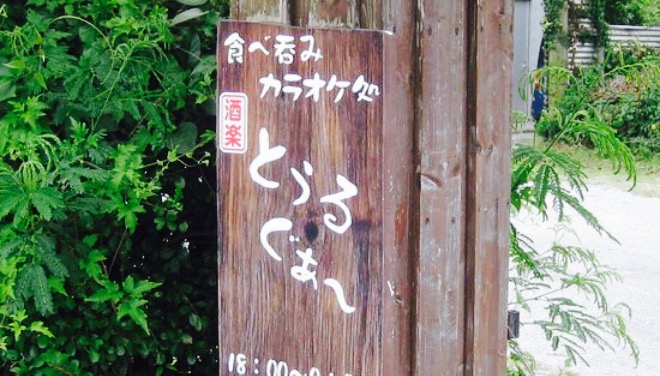 食べ呑み
カラオケ処
酒楽
とぅる
ぐあ〜
18:00〜